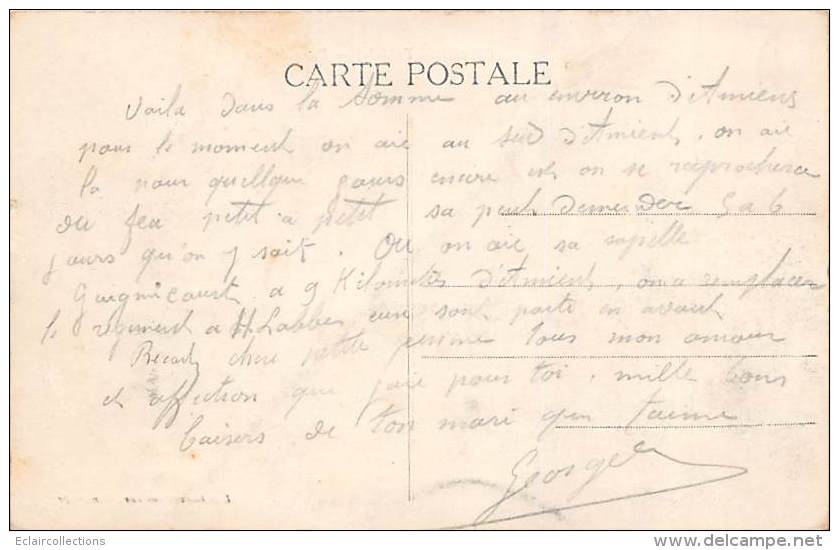 CARTE POSTALE
Voila dans la Somme au environ d'Amiens
pour le moment on aie au sud d'Amient, on aie
la pour quellque jours encore et on se raprochera
du feu petit a petit sa peut demender 5 a 6
jours qu'on y sait. Ou on aie sa sapelle
a 9 Kilometes d'Amient, on a remplacer
le regiment a H. Labbe eux sont parti en avant
chere petite femme tous mon amour
et affection que j'aie pour toi. mille bons
baisers de ton mari qui t'aime
Georges
Eclaircollections
delcampe.net